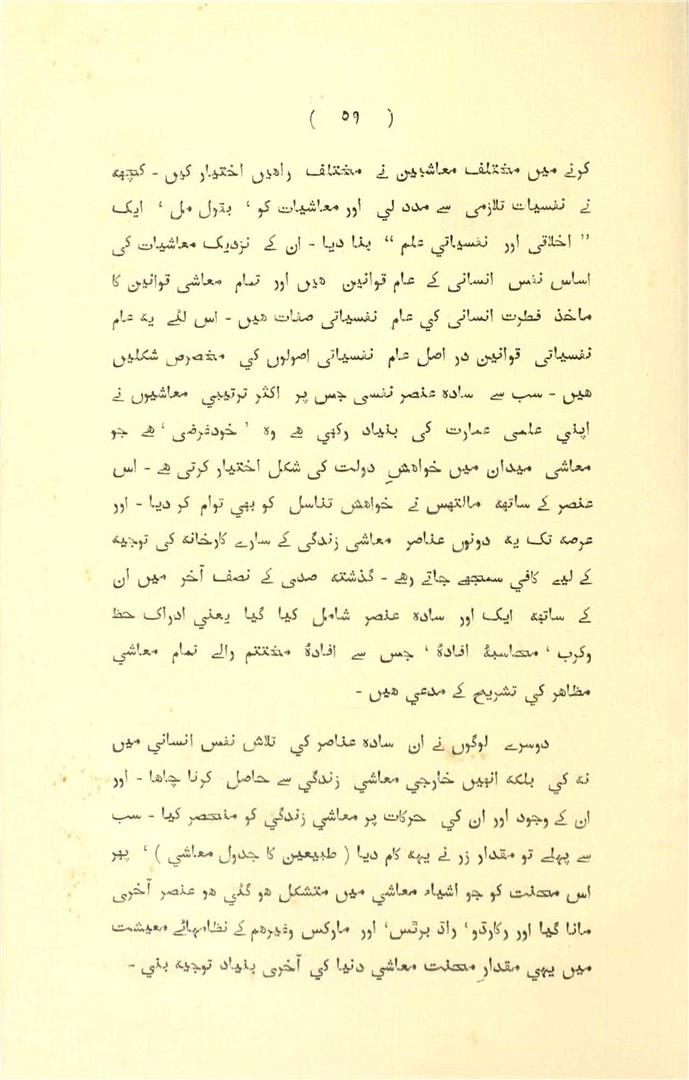 ( ۵۹ )
کرنے میں مختلف معاشیین نے مختلف راھیں اختیار کیں - کچھہ
نے نفسیات تلازمی سے مدد لی اور معاشیات کو ’ بقول مل ‘ ایک
” اخلاقی اور نفسیاتي علم “ بنا دیا - ان کے نزدیک معاشیات کی
اساس نفس انسانی کے عام قوانین ھیں اور تمام معاشی قوانین کا
ماخذ فطرت انسانی کي عام نفسیاتی صفات ھیں - اس لئے یہ عام
نفسیاتی قوانین در اصل عام نفسیاتی اصولوں کي مخصوص شکلیں
ھیں - سب سے سادہ عنصر نفسی جس پر اکثر ترتیبي معاشیوں نے
اپني علمی عمارت کی بنیاد رکھی ھے وہ ’ خودغرضی ‘ ھے جو
معاشی میدان میں خواھشِ دولت کی شکل اختیار کرتی ھے - اس
عنصر کے ساتھہ مالتھس نے خواھش تناسل کو بھی توام کر دیا - اور
عرصہ تک یہ دونوں عناصر معاشی زندگی کے سارے کارخانہ کی توجیہ
کے لیے کافی سمجھے جاتے رھے - گذشتہ صدی کے نصف آخر میں ان
کے ساتھہ ایک اور سادہ عنصر شامل کیا گیا یعني ادراک حظ
وکرب ‘ محاسبۂ افادہ ‘ جس سے افادۂ مختتم والے تمام معاشي
مظاھر کي تشریح کے مدعي ھیں -
دوسرے لوگوں نے ان سادہ عناصر کي تلاش نفس انساني میں
نہ کي بلکہ انہیں خارجي معاشي زندگي سے حاصل کرنا چاھا - اور
ان کے وجود اور ان کي حرکات پر معاشي زندگي کو منحصر کیا - سب
سے پہلے تو مقدار زر نے یہہ کام دیا ( طبیعین کا جدول معاشي ) ‘ پھر
اس محنت کو جو اشیاء معاشي میں متشکل ھو گئي ھو عنصر آخری
مانا گیا اور رکارڈو ‘ راڈ برٹس ‘ اور مارکس وغیرھم کے نظامہائے معیشت
میں یہي مقدارِ محنت معاشي دنیا کي آخری بنیاد توجیہ بني -